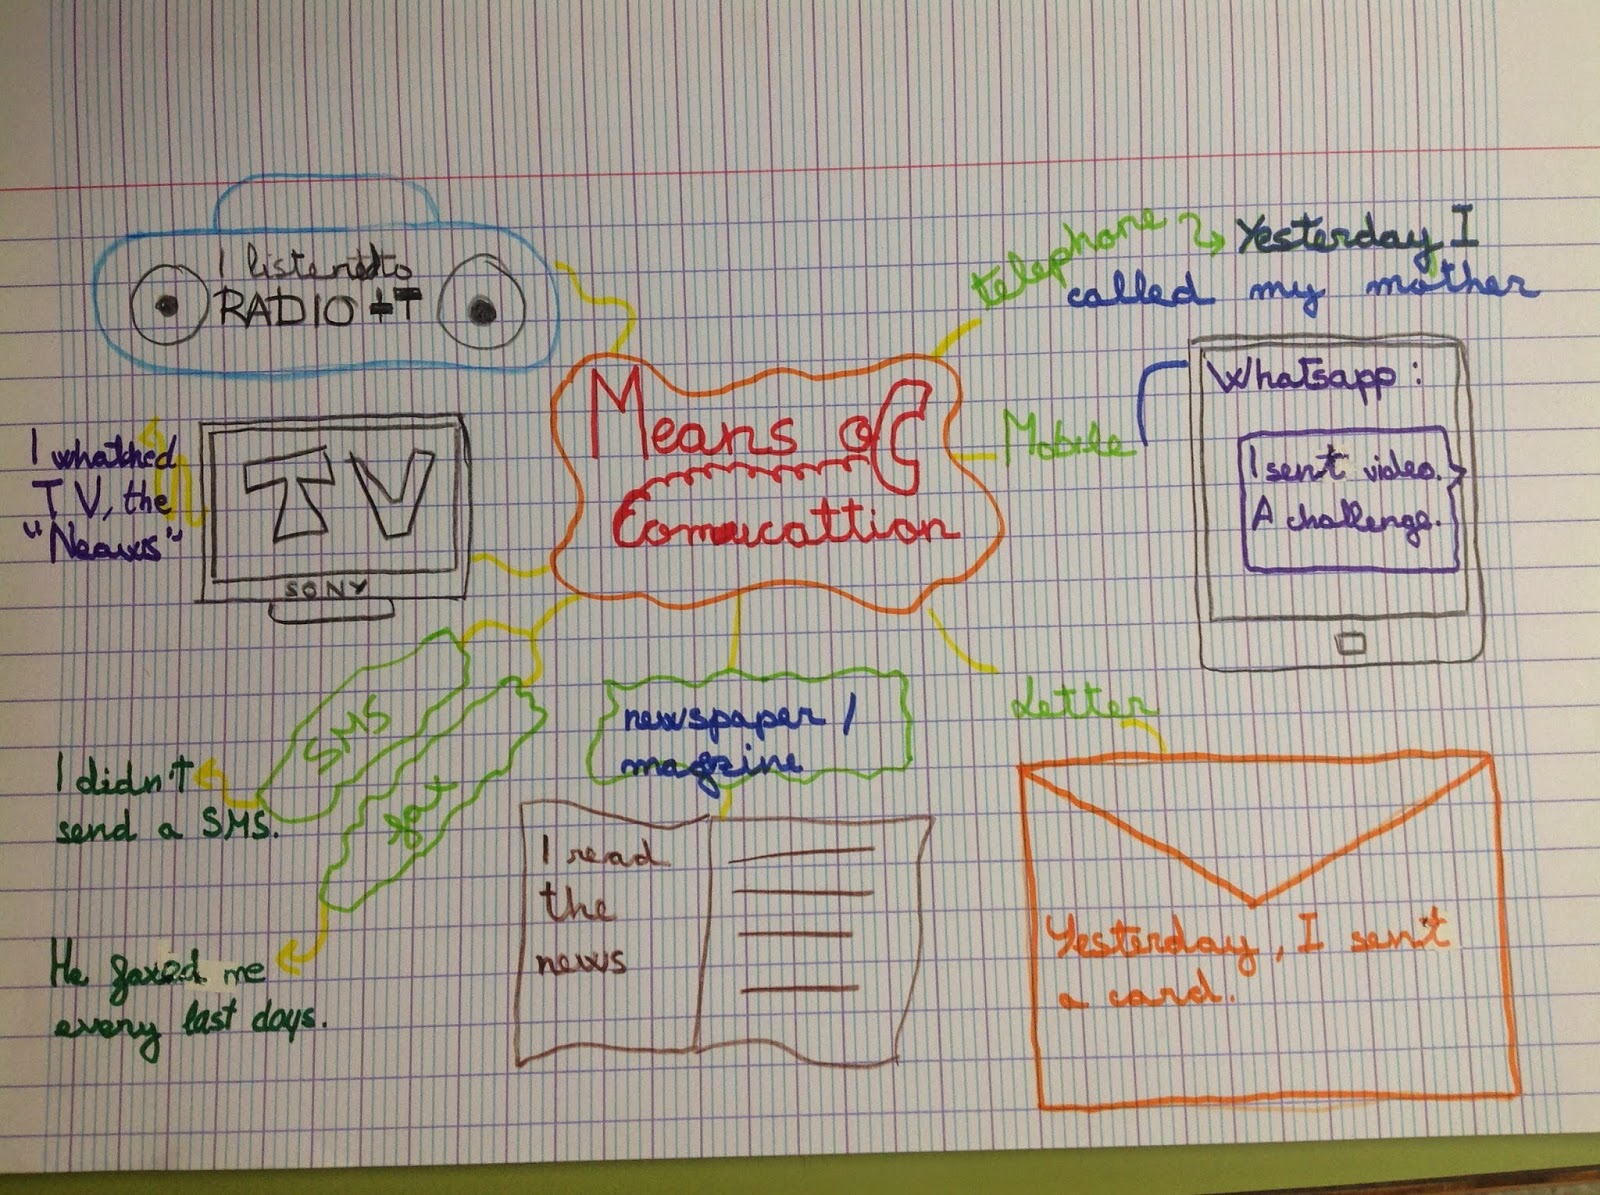 I listened to
RADIO
telephone
Yesterday I
called my mother
Means of
Comucattion
Mobile
Whatsapp:
I sent video.
A challenge.
I whatched
TV, the
"Neawss"
TV
SONY
SMS
I didn't
send a SMS.
He faxed me
every last days.
newspaper /
magzine
I read
the
news
Letter
Yesterday, I sent
a card.